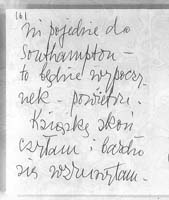 (6)
ni pojedzie do
Southampton –
to będzie wypoczy-
nek – powietrze.
Książkę skoń
czyłam i bardzo
się wzruszyłam.